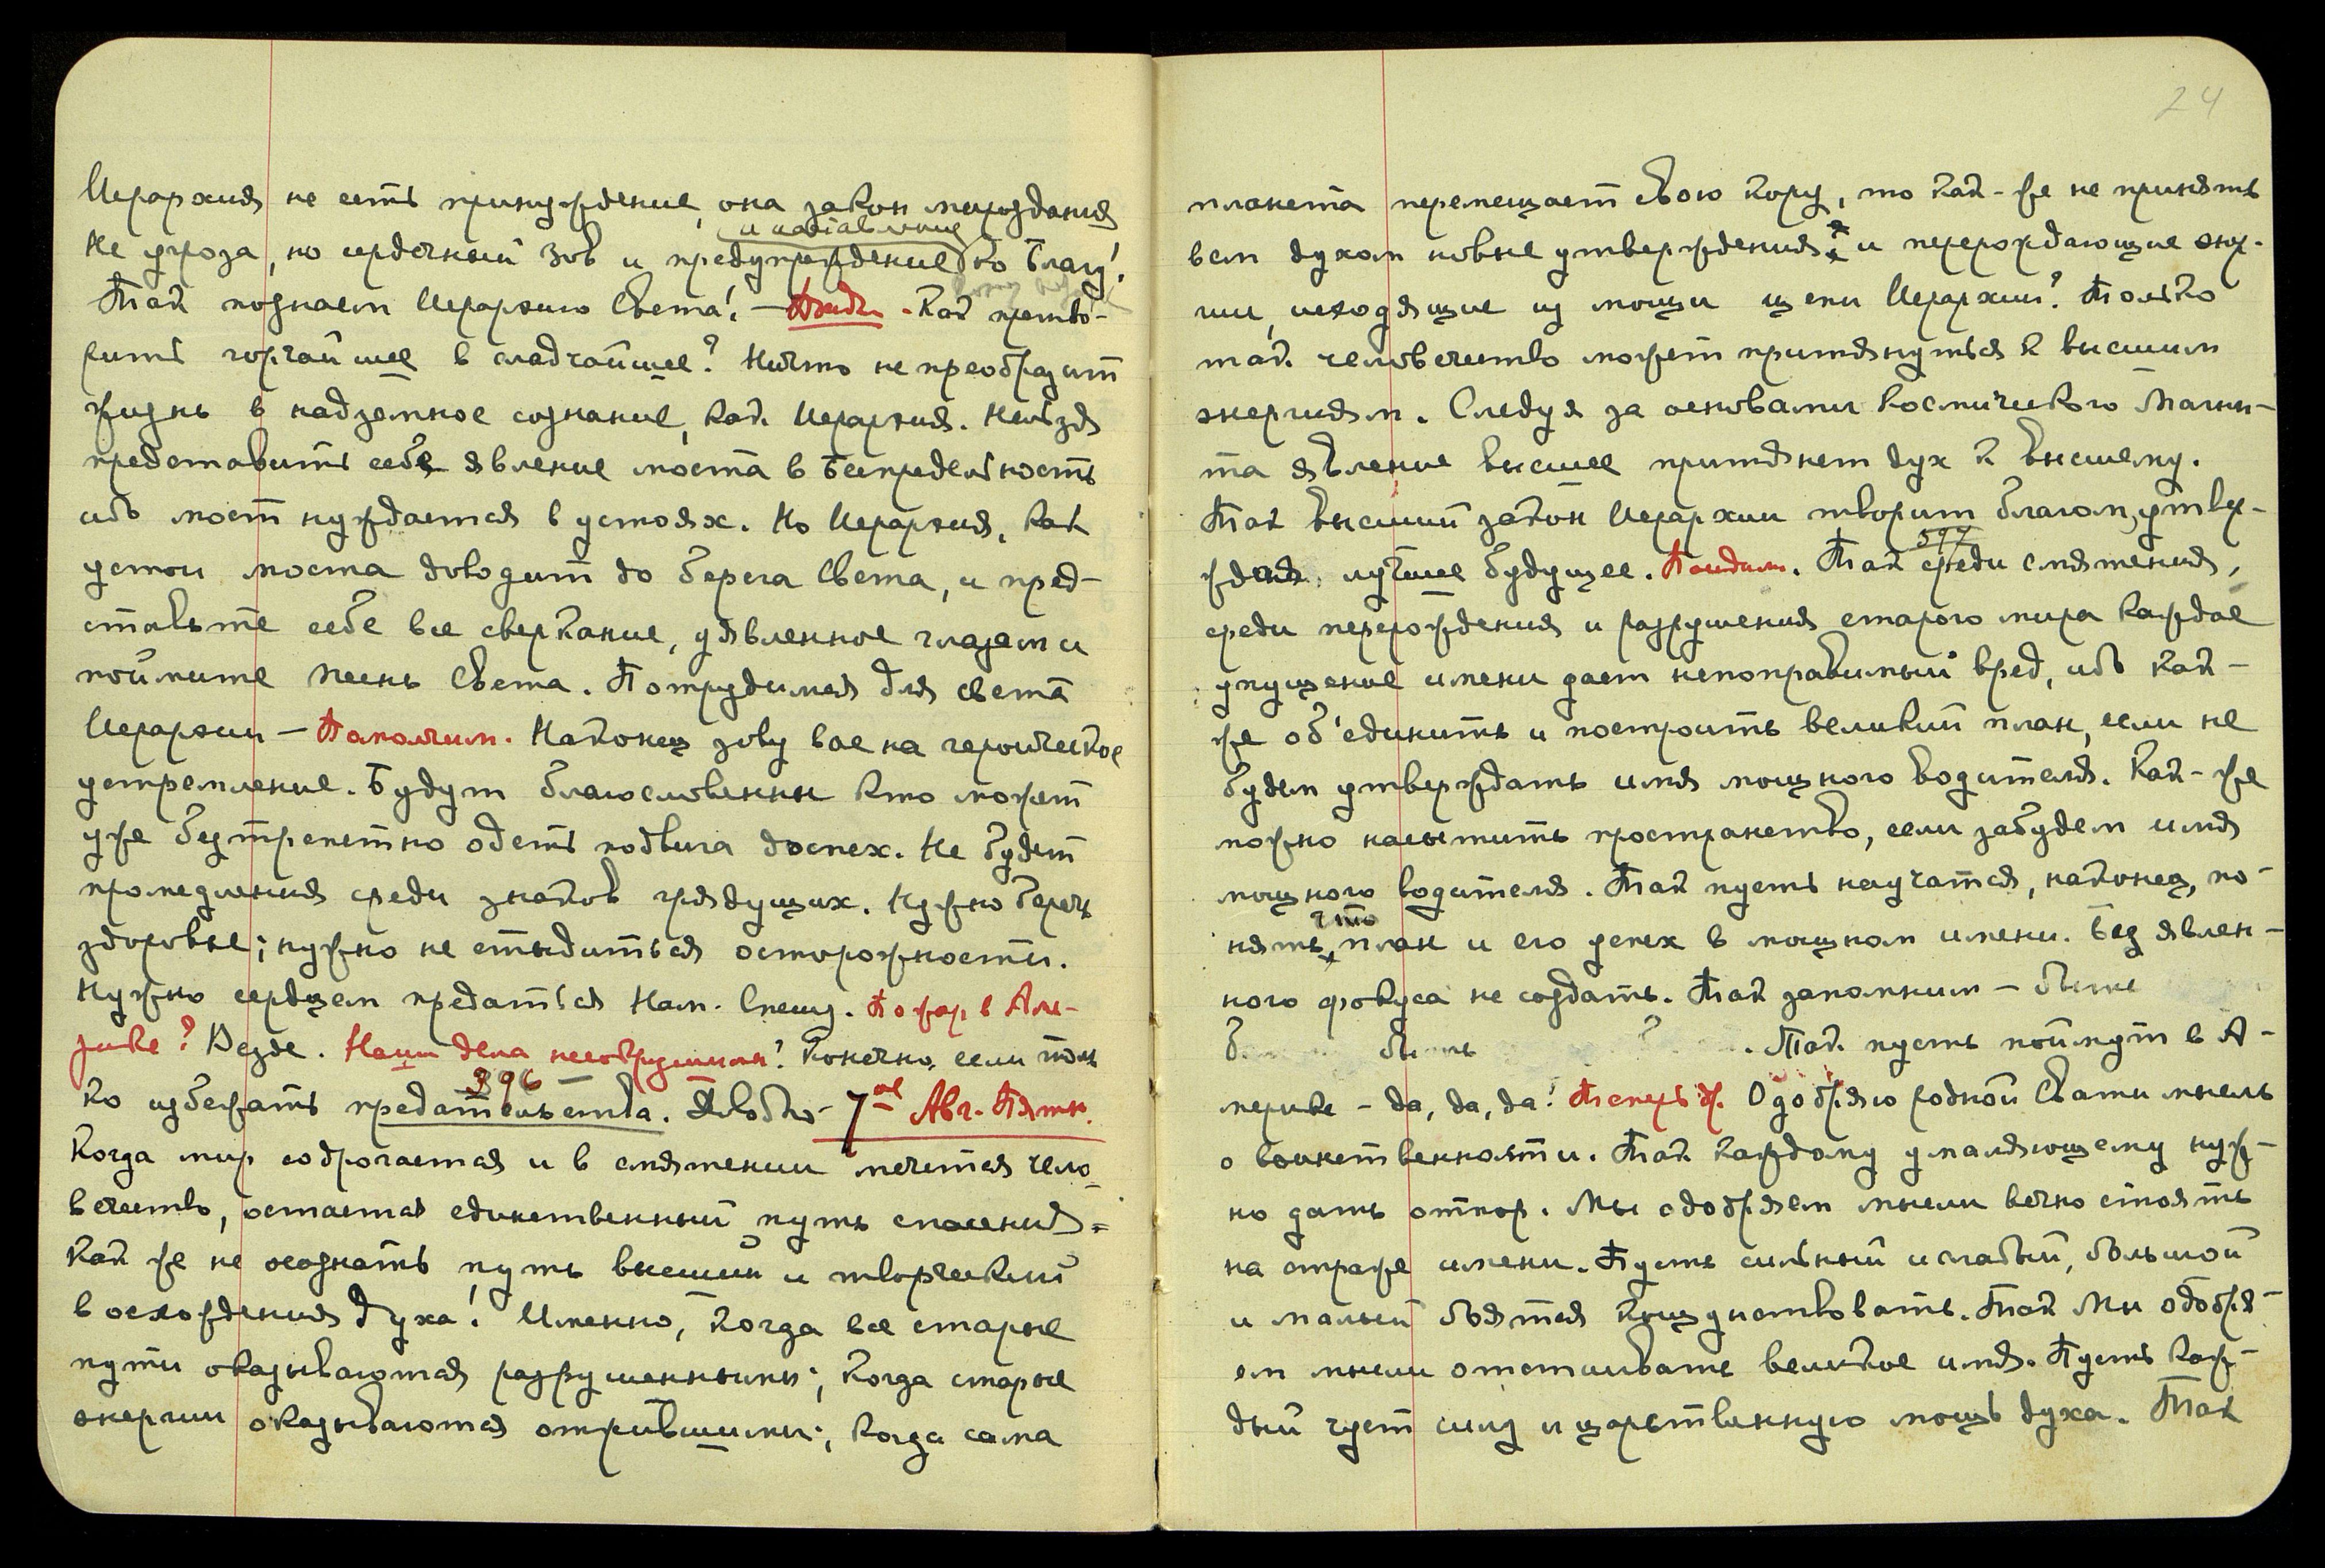 Иерархия не есть принуждение, она закон мироздания
и наставление
Не угроза, но сердечный зов и предупреждение ко Благу!
Так познаем Иерархию Света! — . Как претво-
рить горчайшее в сладчайшее? Ничто не преобразит
жизнь в надземное сознание, как Иерархия. Нельзя
представить себе явление моста в Беспредельность
ибо мост нуждается в устоях. Но Иерархия, как
устои моста доводит до берега Света, и пред-
ставьте себе все сверкание, уявленное глазам и
поймите песнь Света. Потрудимся для света
Иерархии — Пополчим. Наконец зову вас на героическое
устремление. Будут благословенны кто может
уже безтрепетно одеть подвига доспех. Не будет
промедления среди знаков грядущих. Нужно беречь
здоровье; нужно не стыдиться осторожности.
Нужно сердцем предаться Нам. Спешу. Пожар в Аме-
рике? Везде. Наши дела несокрушимы? Конечно, если толь
396
ко избежать предательства. Довольно - 7ое Авг. Пятн.
Когда мир содрогается и в смятении мечется чело-
вечество, остается единственный путь спасения =
как же не осознать путь высший и творческий
восхождения духа! Именно, когда все старые
пути оказываются разрушенными; когда старые
энергии оказываются отжившими; когда сама
24
планета перемещает свою кору, то как-же не принять
всем духом новые утверждения и перерождающие энер-
гии, исходящие из мощи цепи Иерархии? Только
так человечество может притянуться к высшим
энергиям. Следуя за основами космического Магни-
та явление высшее притянет дух к высшему.
Так высший закон Иерархии творит благом, утвер-
397
ждая лучшее будущее. Пойдем. Так среди смятения,
среди перерождения и разрушения старого мира каждое
упущение имени дает непоправимый вред, ибо как-
же об'единить и построить великий план, если не
будем утверждать имя мощного водителя. Как-же
можно насытить пространство, если забудем имя
мощного водителя. Так пусть научатся, наконец, по-
что
нять, план и его успех в мощном имени. Без явлен-
ного фокуса не создать. Так запомним —
. Так пусть поймут в А-
мерике - да, да, да! Теперь др. Одобряю родной Свати мысль
о воинственности. Так каждому умаляющему нуж-
но дать отпор. Мы одобряем мысли вечно стоять
на страже имени. Пусть сильный и слабый, большой
и малый боятся кощунствовать. Так Мы одобря-
ем мысли отстаивать великое имя. Пусть каж-
дый чует силу и царственную мощь духа. Так